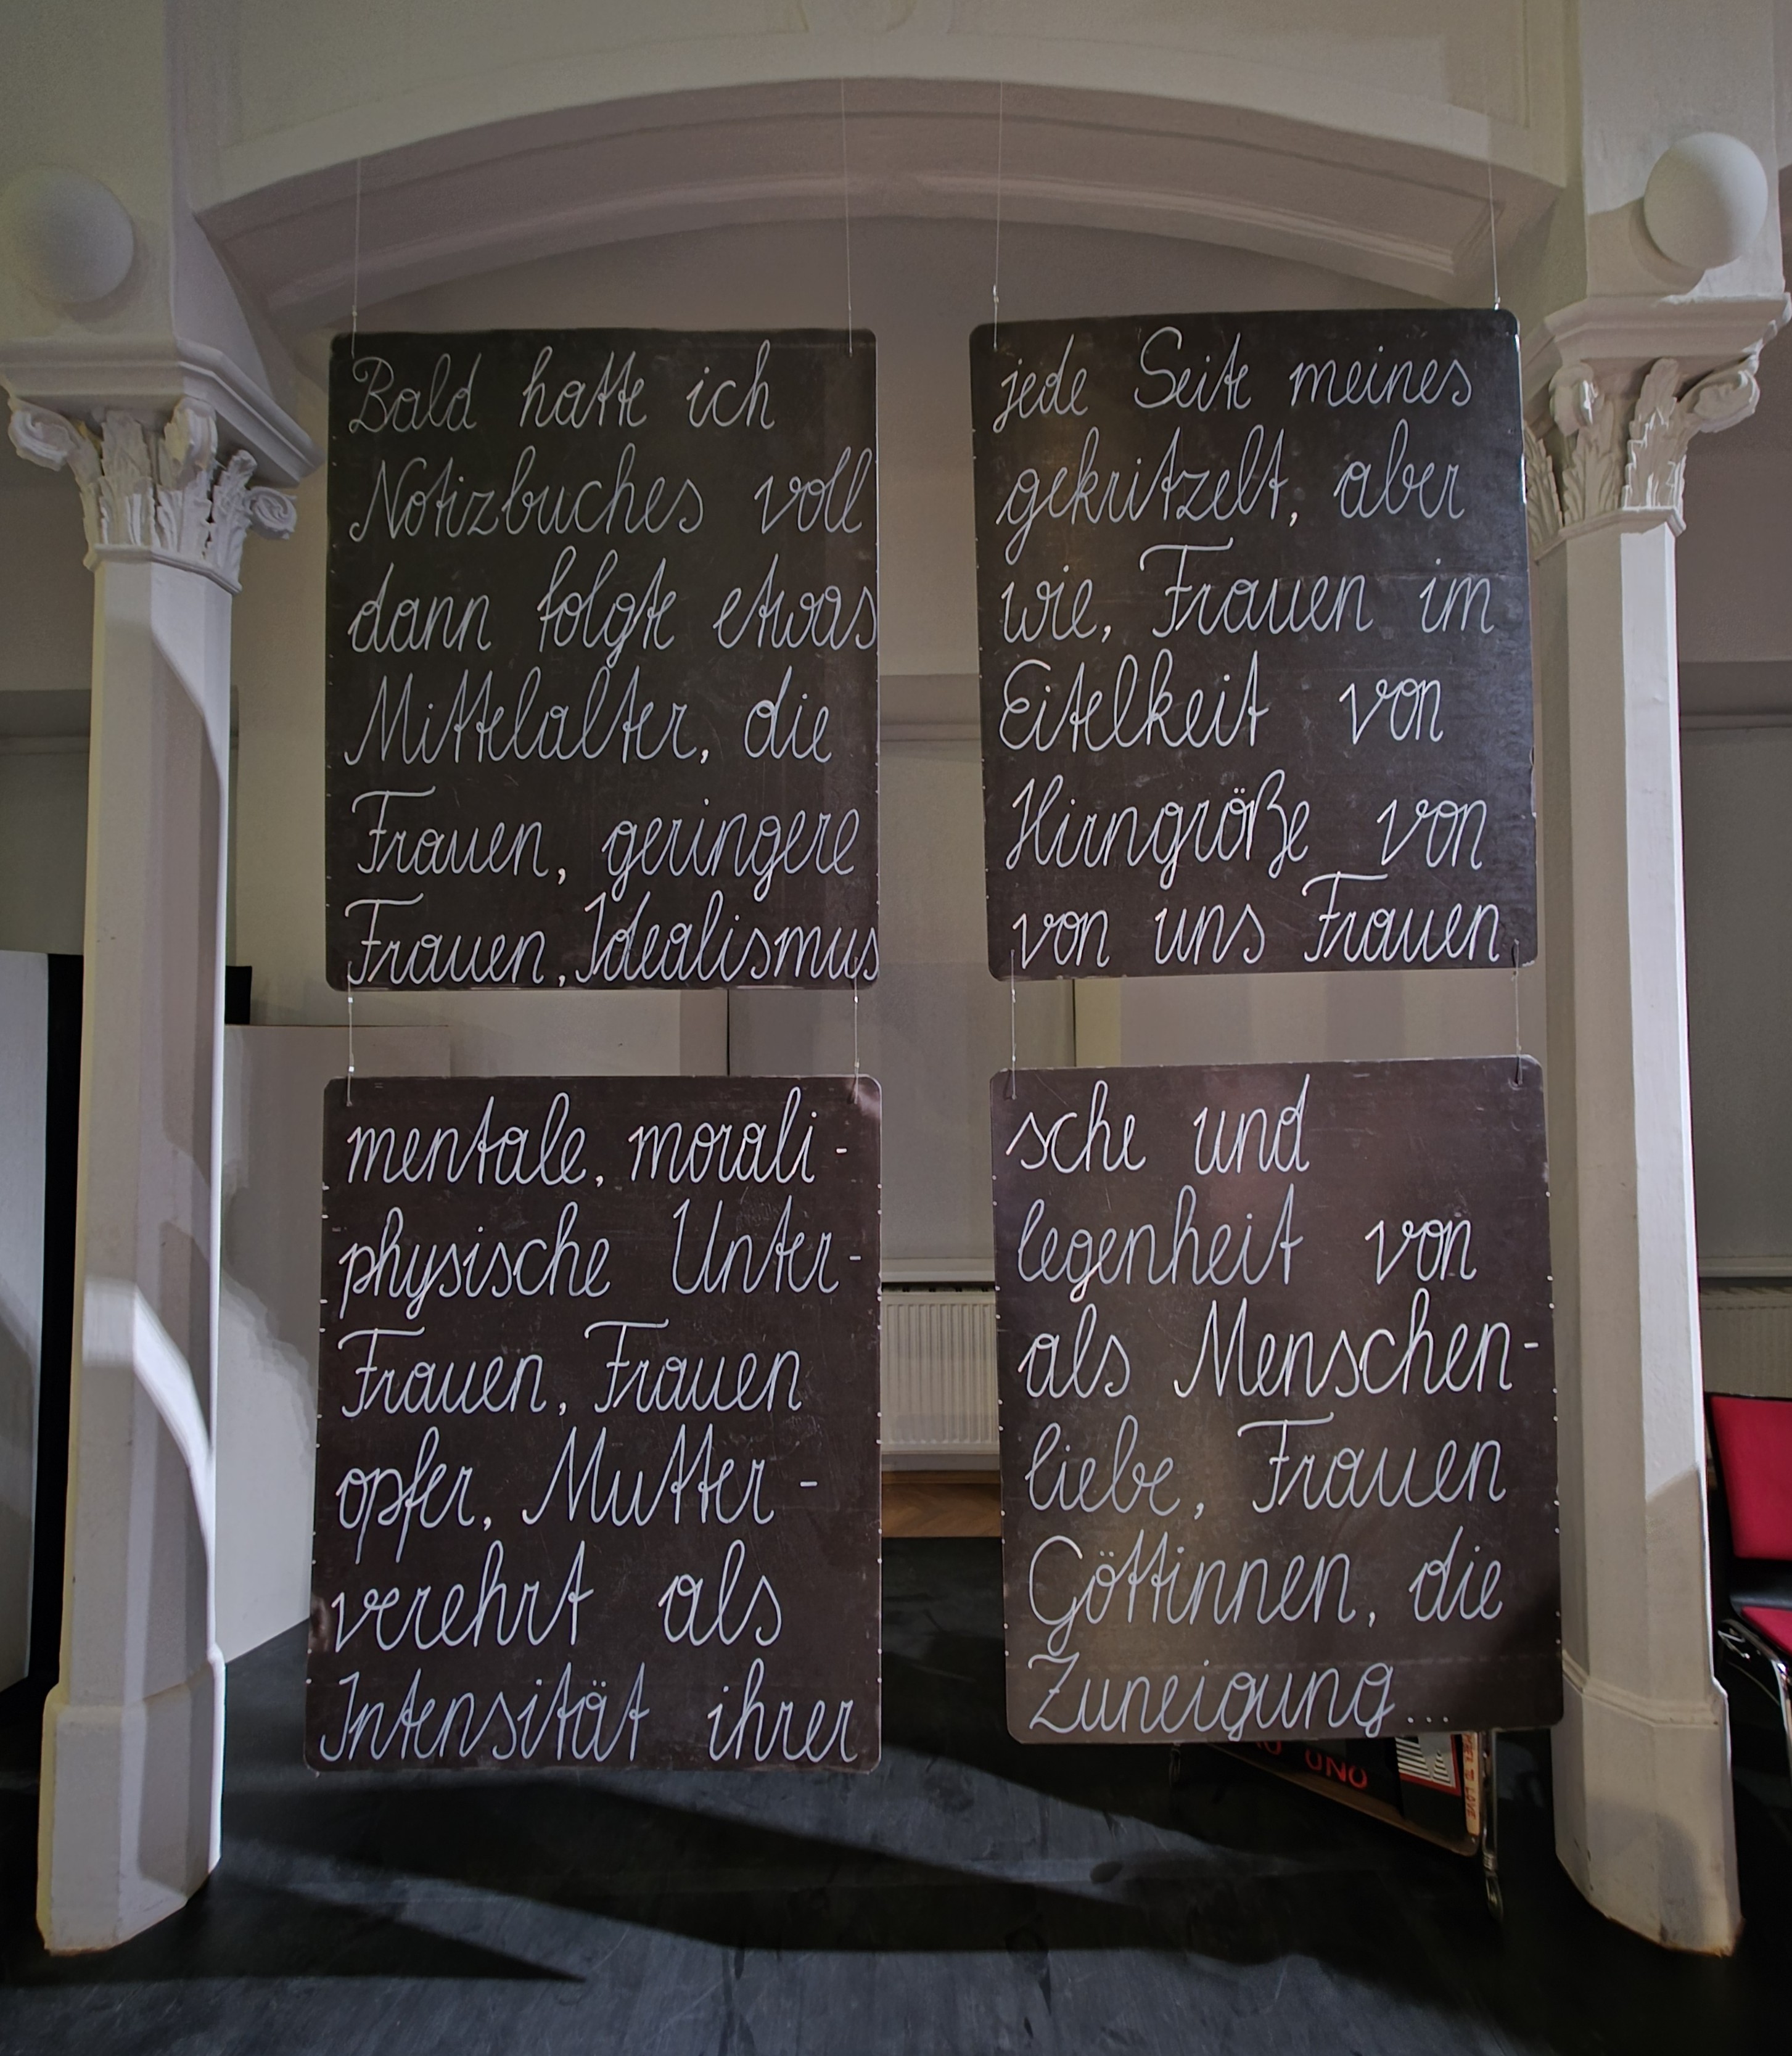 Bald hatte ich jede Seite meines
Notizbuches voll gekritzelt, aber
dann folgte etwas wie, Frauen im
Mittelalter, die Eitelkeit von
Frauen, geringere Hirngröße von
Frauen, Idealismus von uns Frauen
mentale, morali- sche und
physische Unter- legenheit von
Frauen, Frauen als Menschen-
opfer, Mutter- liebe, Frauen
verehrt als Göttinnen, die
Intensität ihrer Zuneigung...
UNO